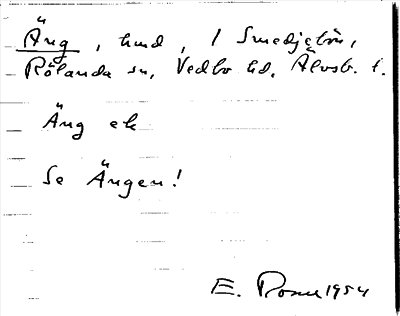 Äng, hmd, 1 Smedjebön,
Rölanda sn, Vedbo hd, Älvsb. l.
Äng ek
Se Ängen!
E. Rosell 1954